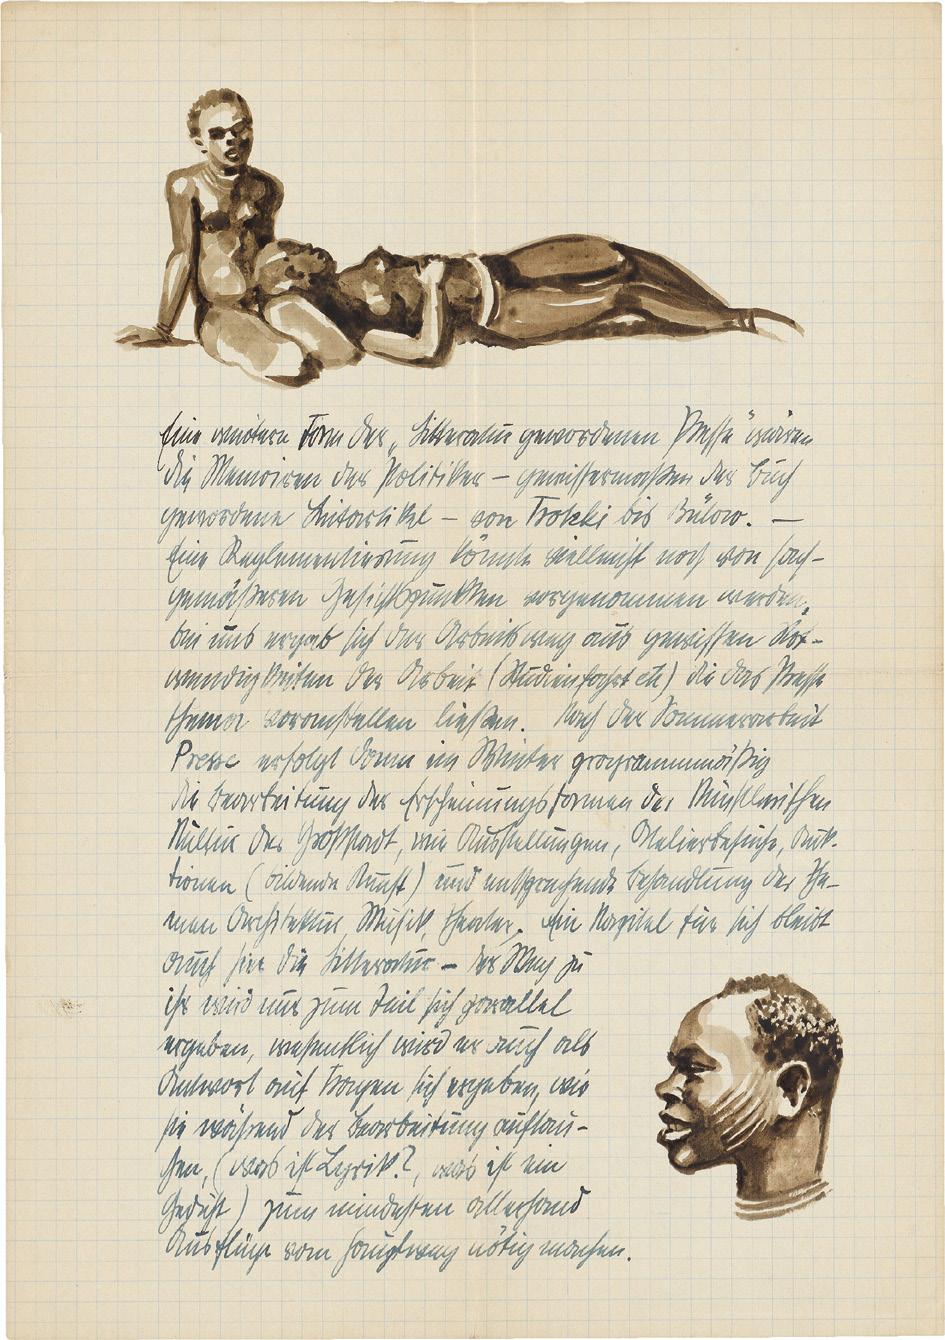 Eine weitere Form der „Litteratur gewordenen Presse“ wären
die Memoiren der Politiker – gewissermaßen der Buch
gewordene Leitartikel – von Trotzki bis Bülow. –
Eine Reglementierung könnte vielleicht noch von sach-
gemäßeren Gesichtspunkten vorgenommen werden,
bei uns ergab sich der Arbeitsweg aus gewissen Not-
wendigkeiten der Arbeit (Studienfahrt etc) die das Presse
thema voranstellen ließen. Nach der Sommerarbeit
Presse erfolgt dann im Winter programmmäßig
die Bearbeitung der Erscheinungsformen der künstlerischen
Kultur der Großstadt, wie Ausstellungen, Atelierbesuche, Auk-
tionen (bildende Kunst) und entsprechende Behandlung der The-
men Architektur, Musik, Theater. Ein Kapitel für sich bleibt
auch hier die Litteratur – der Weg zu
ihr wird nur zum Teil sich parallel
ergeben, wesentlich wird er auch als
Antwort auf Fragen sich ergeben, wie
sie während der Bearbeitung auftau-
chen, (was ist Lyrik?, was ist ein
Gedicht) zum mindesten allerhand
Ausflüge vom Hauptweg nötig machen.